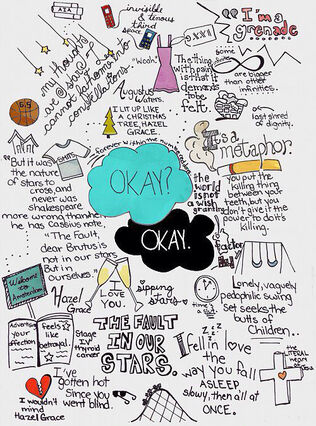 AIA
invisible
& tenous
third
space
"I'm a
grenade
my thoughts
are stars I
cannot fathom into
constellations.
"Woah."
Augustus
Waters.
The thing
with pain
is that it
demands
to be
felt.
some
infinities
are bigger
than other
infinities.
last shred
of dignity.
I LIT UP LIKE
A CHRISTMAS
TREE, HAZEL
GRACE.
forever within the numbered days
"But it was
the nature
of stars to
cross, and
never was
Shakespeare
more wrong than when
he has Cassius note,
"The Fault,
dear Brutus is
not in our stars
But in
ourselves."
SHIRTS
OKAY?
OKAY.
It's a
metaphor.
you put
the killing
thing
between your
teeth, but you
don't give it the
power to do it's
killing.
the
world
is not
a wish
granting
factory
Welcome
to
Amsterdam
Hazel
Grace
I
LOVE
YOU.
sipping
stars
Lonely, vaguely
pedophilic swing
set seeks the
butts of
Children..
Advertising
your
affection
Feels
like
betrayal.
Stage
IV
thyroid
cancer
THE FAULT
IN OUR
STARS.
zzz
I fell in love
the
way you fall
ASLEEP
slowly, then all at
ONCE.
THE
LITERAL
HEART
OF
JESUS
I've
gotten hot
Since you
went blind.
I wouldn't
mind
Hazel Grace